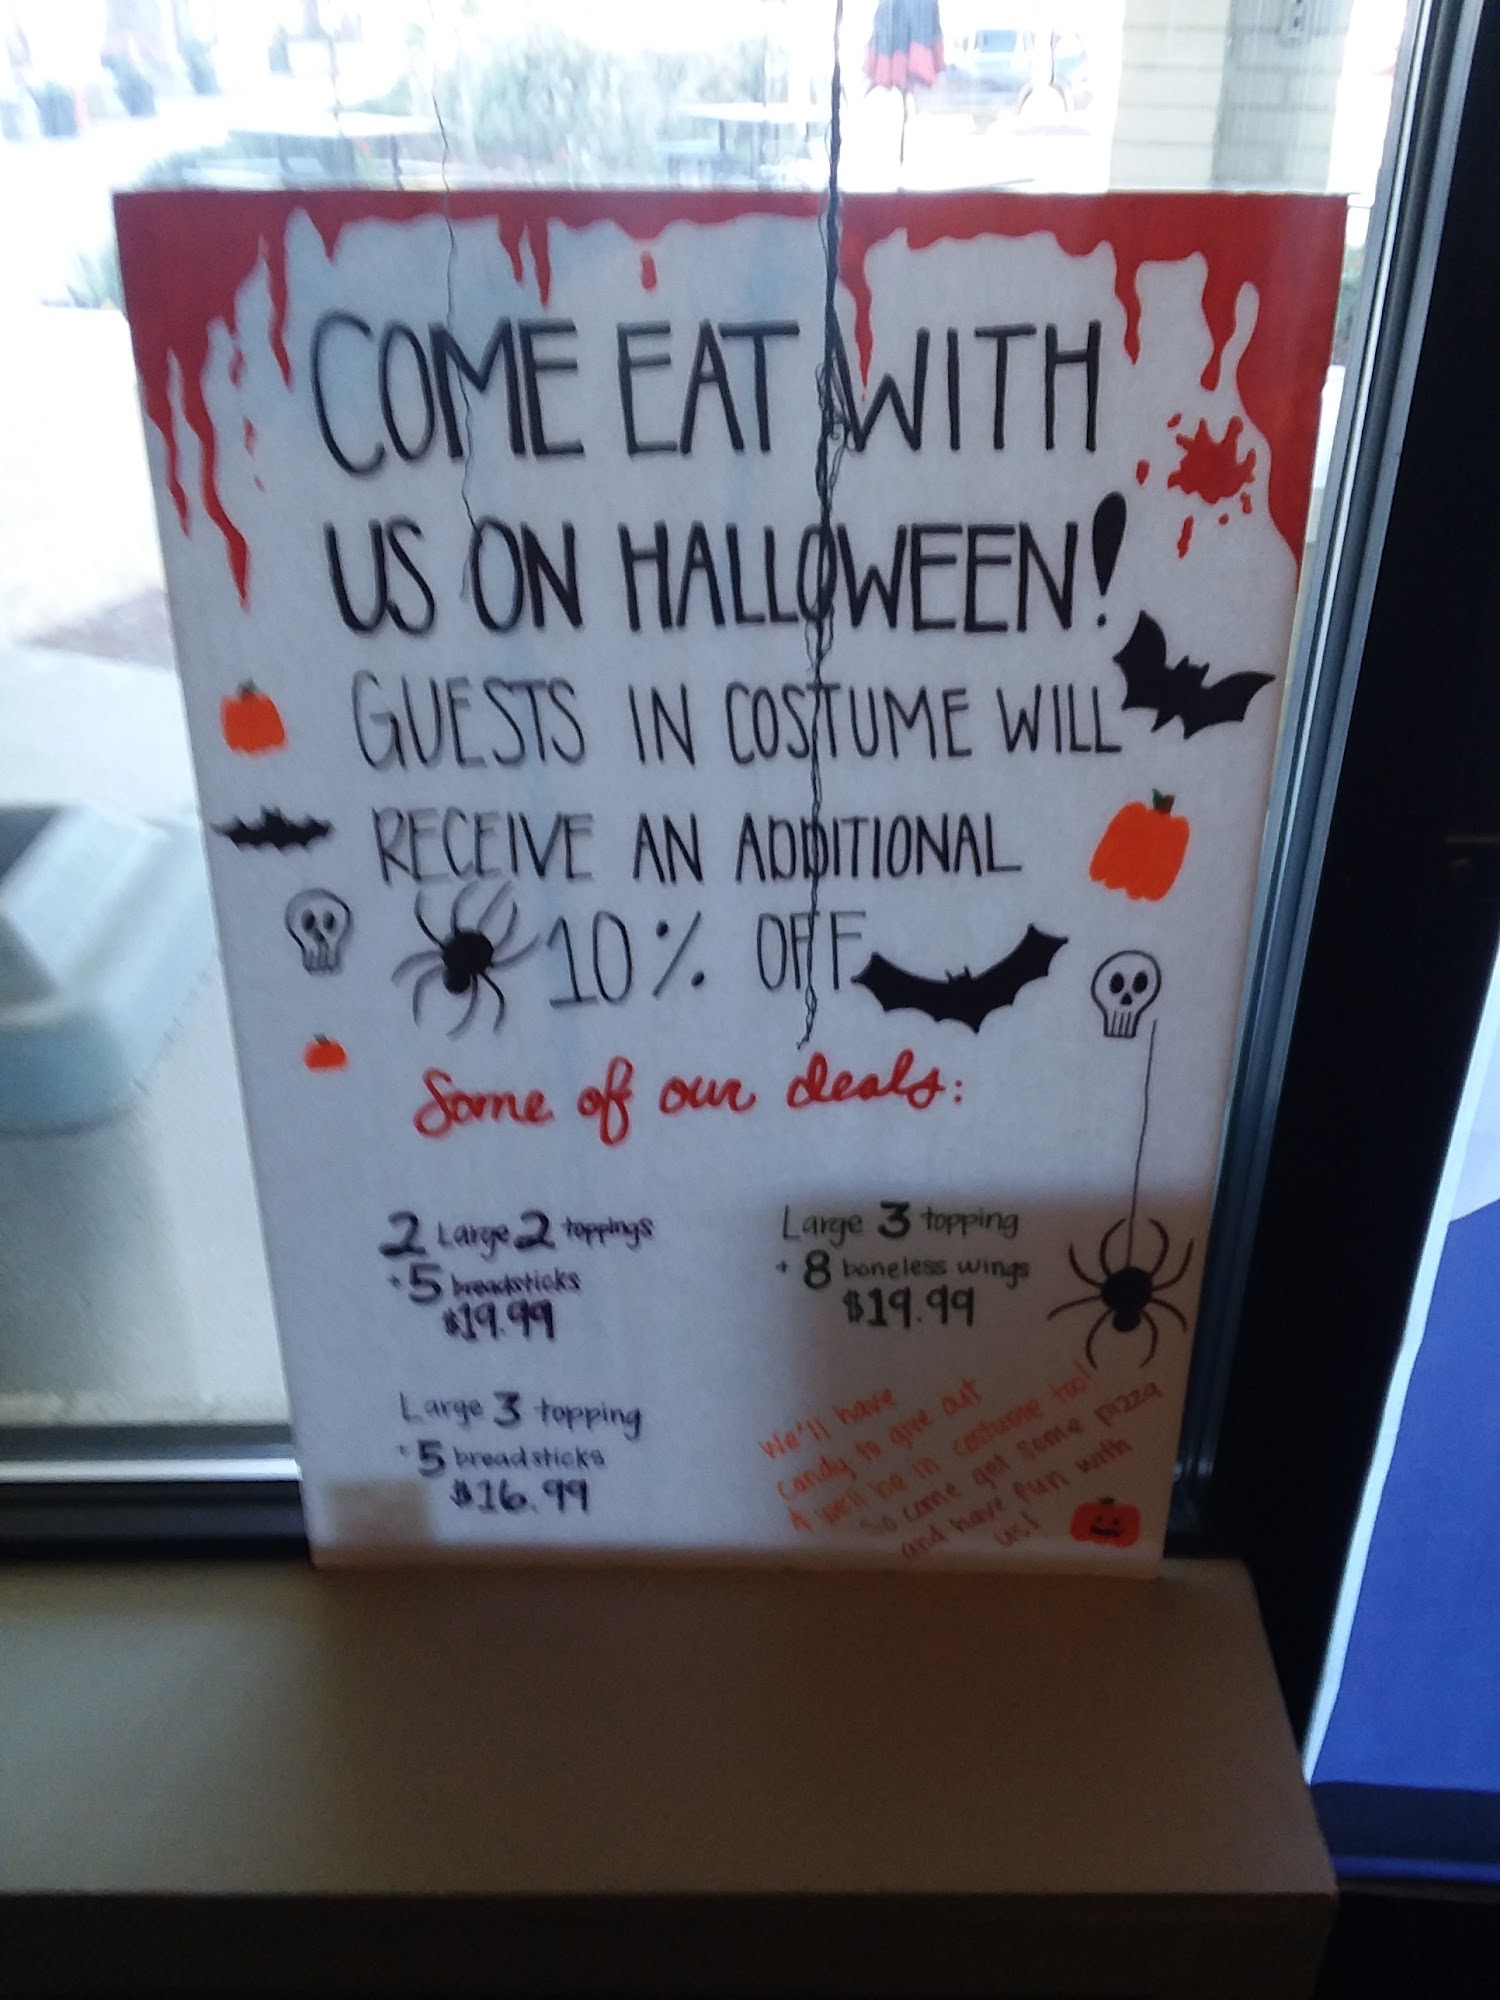 COME EAT WITH
US ON HALLOWEEN!
GUESTS IN COSTUME WILL
RECEIVE AN ADDITIONAL
10% OFF
Some of our deals:
2 Large 2 toppings
+ 5 breadsticks
$19.99
Large 3 topping
+ 8 boneless wings
$19.99
Large 3 topping
+ 5 breadsticks
$16.99
We'll have
candy to give out
& we'll be in costume too!
So come get some pizza
and have fun with
us!